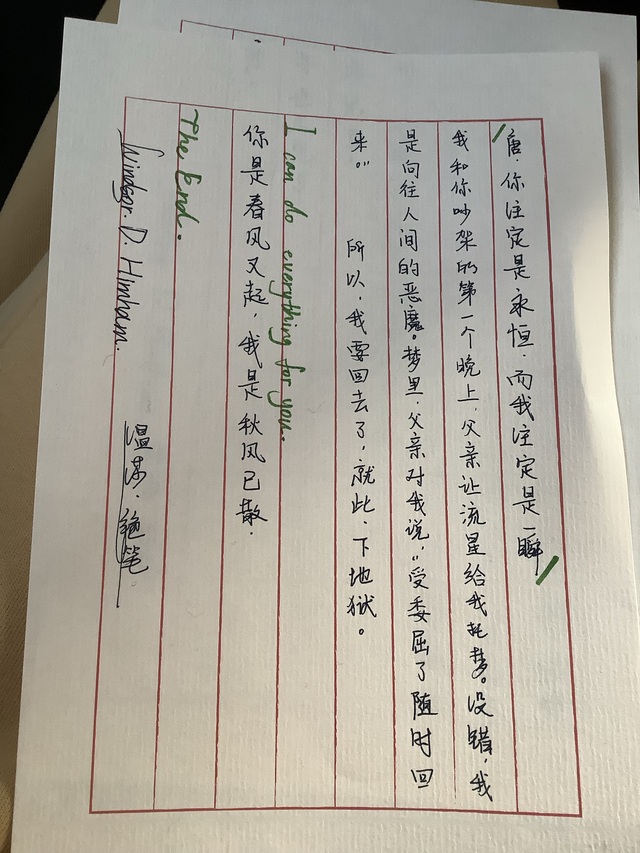 唐,你注定是永恒,而我注定是一瞬
我和你吵架的第一个晚上,父亲让流星给我托梦。没错,我
是向往人间的恶魔。梦里,父亲对我说,“受委屈了随时回
来。” 所以,我要回去了,就此,下地狱。
I can do everything for you.
你是春风又起,我是秋风已散.
The End.
Windsor. D. 温某.绝笔